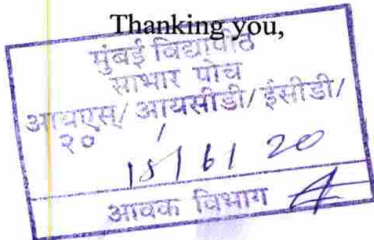 Thanking you,
मुंबई विद्यापीठ
साभार पोच
आयएस/ आयसीडी/ ईसीडी/
२०
15/6/20
आवक विभाग